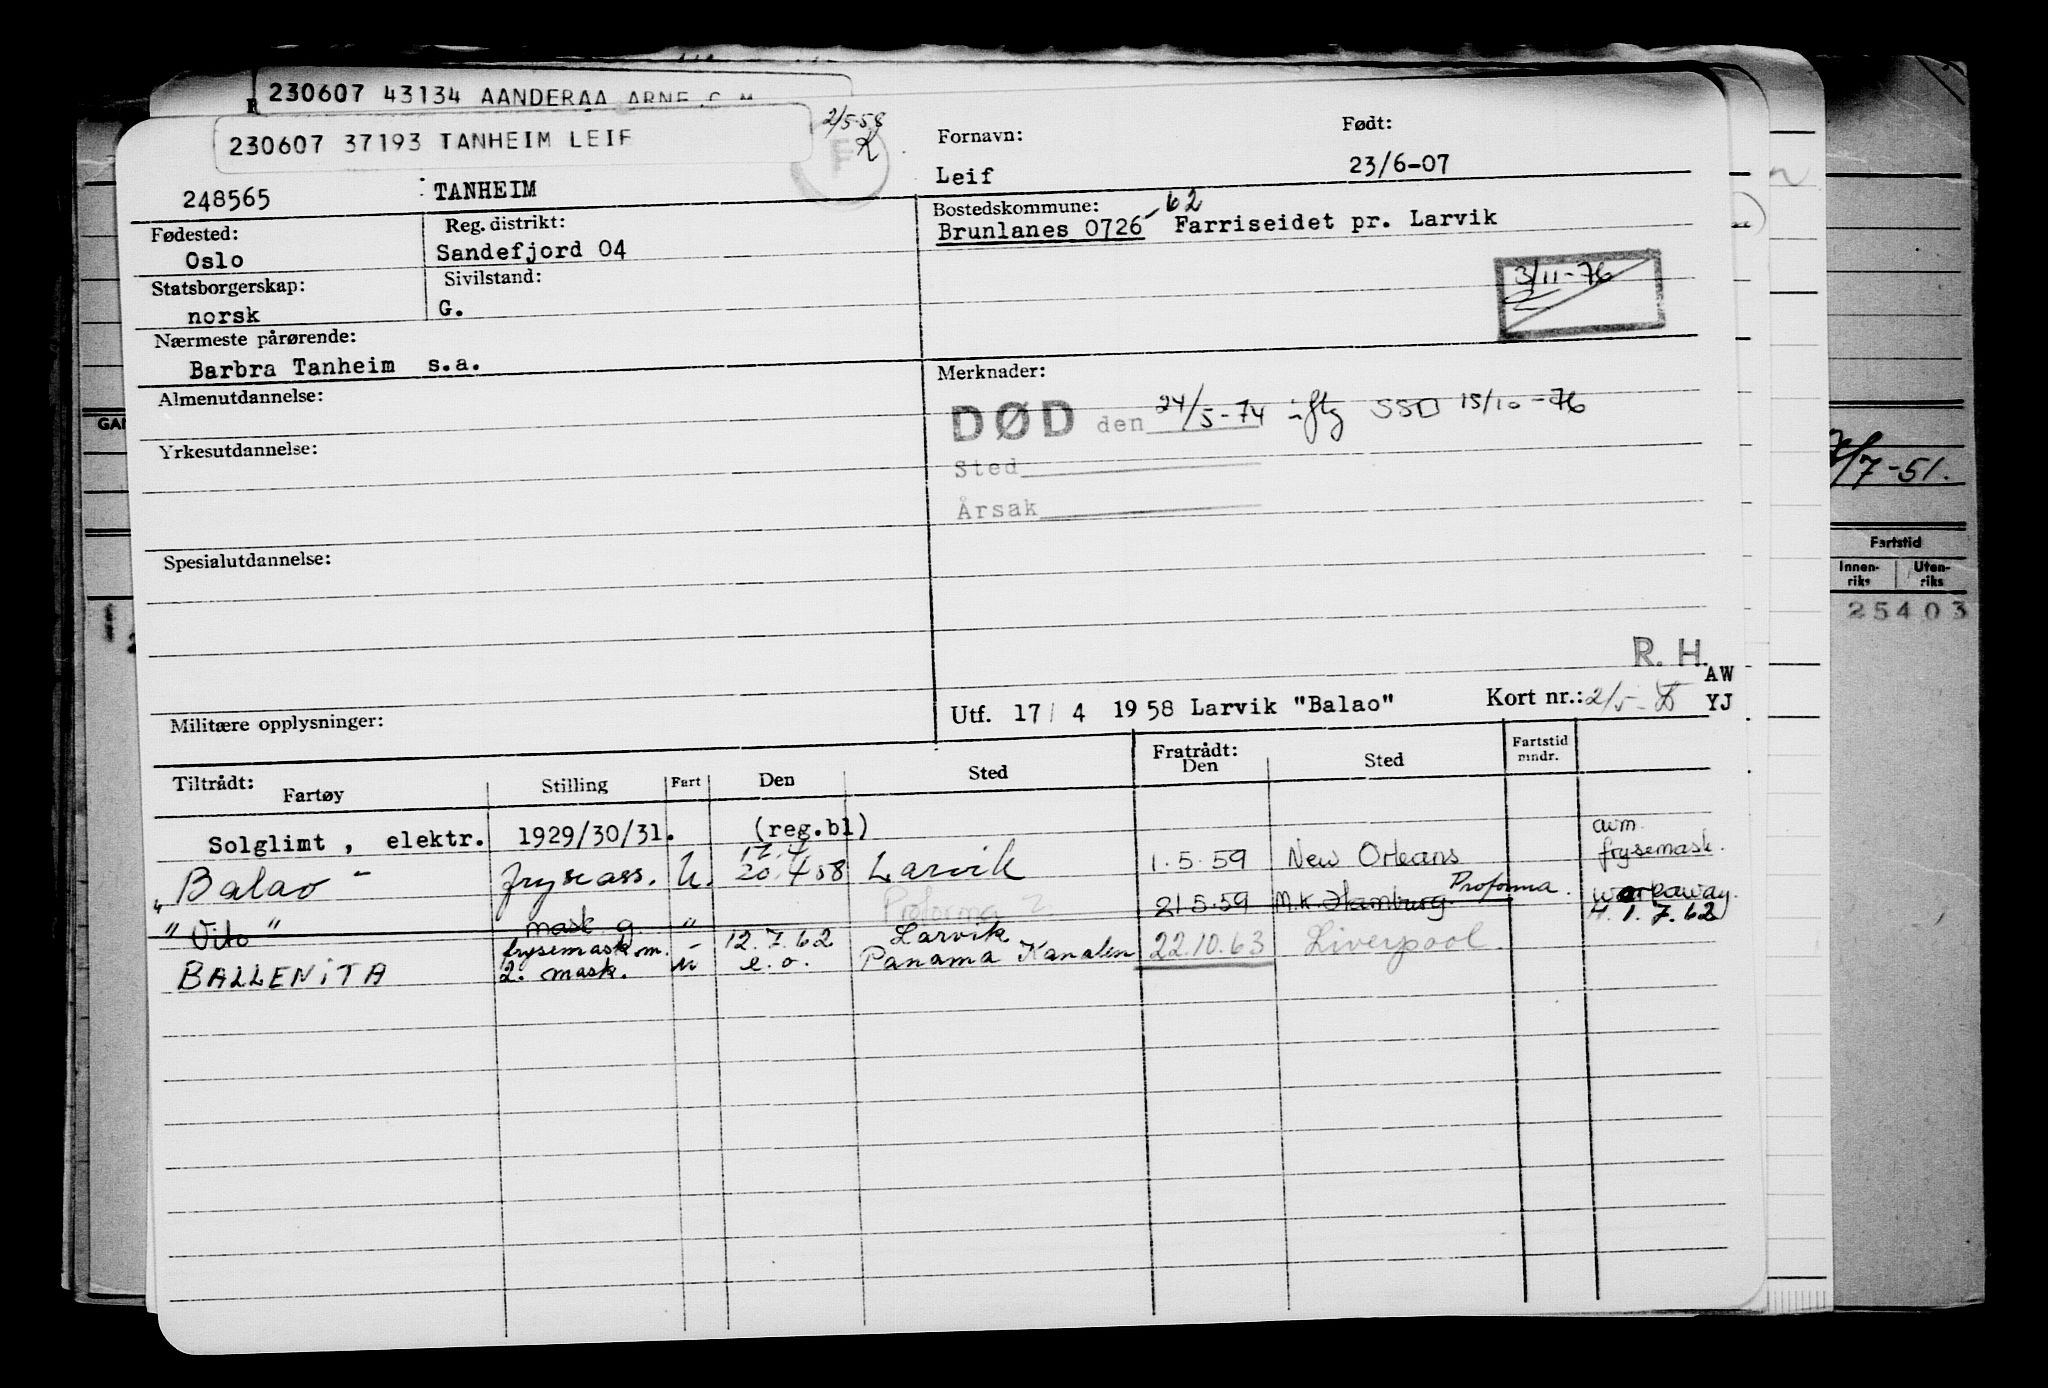 230607 43134 AANDERAA ARNE C M
230607 37193 TANHEIM LEIF
2/5-58
F
Fornavn:
Født:
248565
TANHEIM
Leif
23/6-07
Fødested:
Reg. distrikt:
Bostedskommune:
Oslo
Sandefjord 04
Brunlanes 0726-62 Farriseidet pr. Larvik
Statsborgerskap:
Sivilstand:
norsk
G.
3/11-76
Nærmeste pårørende:
Barbra Tanheim s.a.
Merknader:
Almenutdannelse:
DØD den 24/5-74 iflg SSB 15/10-76
Yrkesutdannelse:
Sted
Årsak
7-51.
Spesialutdannelse:
Fartstid
Innen-riks
Uten-riks
25403
R. H.
AW
Militære opplysninger:
Utf. 17/ 4 1958 Larvik "Balao"
Kort nr.: 2/5-
YJ
Tiltrådt:
Fartøy
Stilling
Fart
Den
Sted
Fratrådt:
Den
Sted
Fartstid mndr.
Solglimt , elektr. 1929/30/31. (reg.bl)
"Balao" fryseass. U. 17.4 20.4 58 Larvik 1.5.59 New Orleans avm. frysemask.
"Vito" mask g. " Proforma 21.5.59 M.K. Hamburg. Proforma. workaway.
H. 1.7.62
BALLENITA frysemask.m. " 12.7.62 Larvik 22.10.63 Liverpool.
2. mask. U e.o. Panama Kanalen